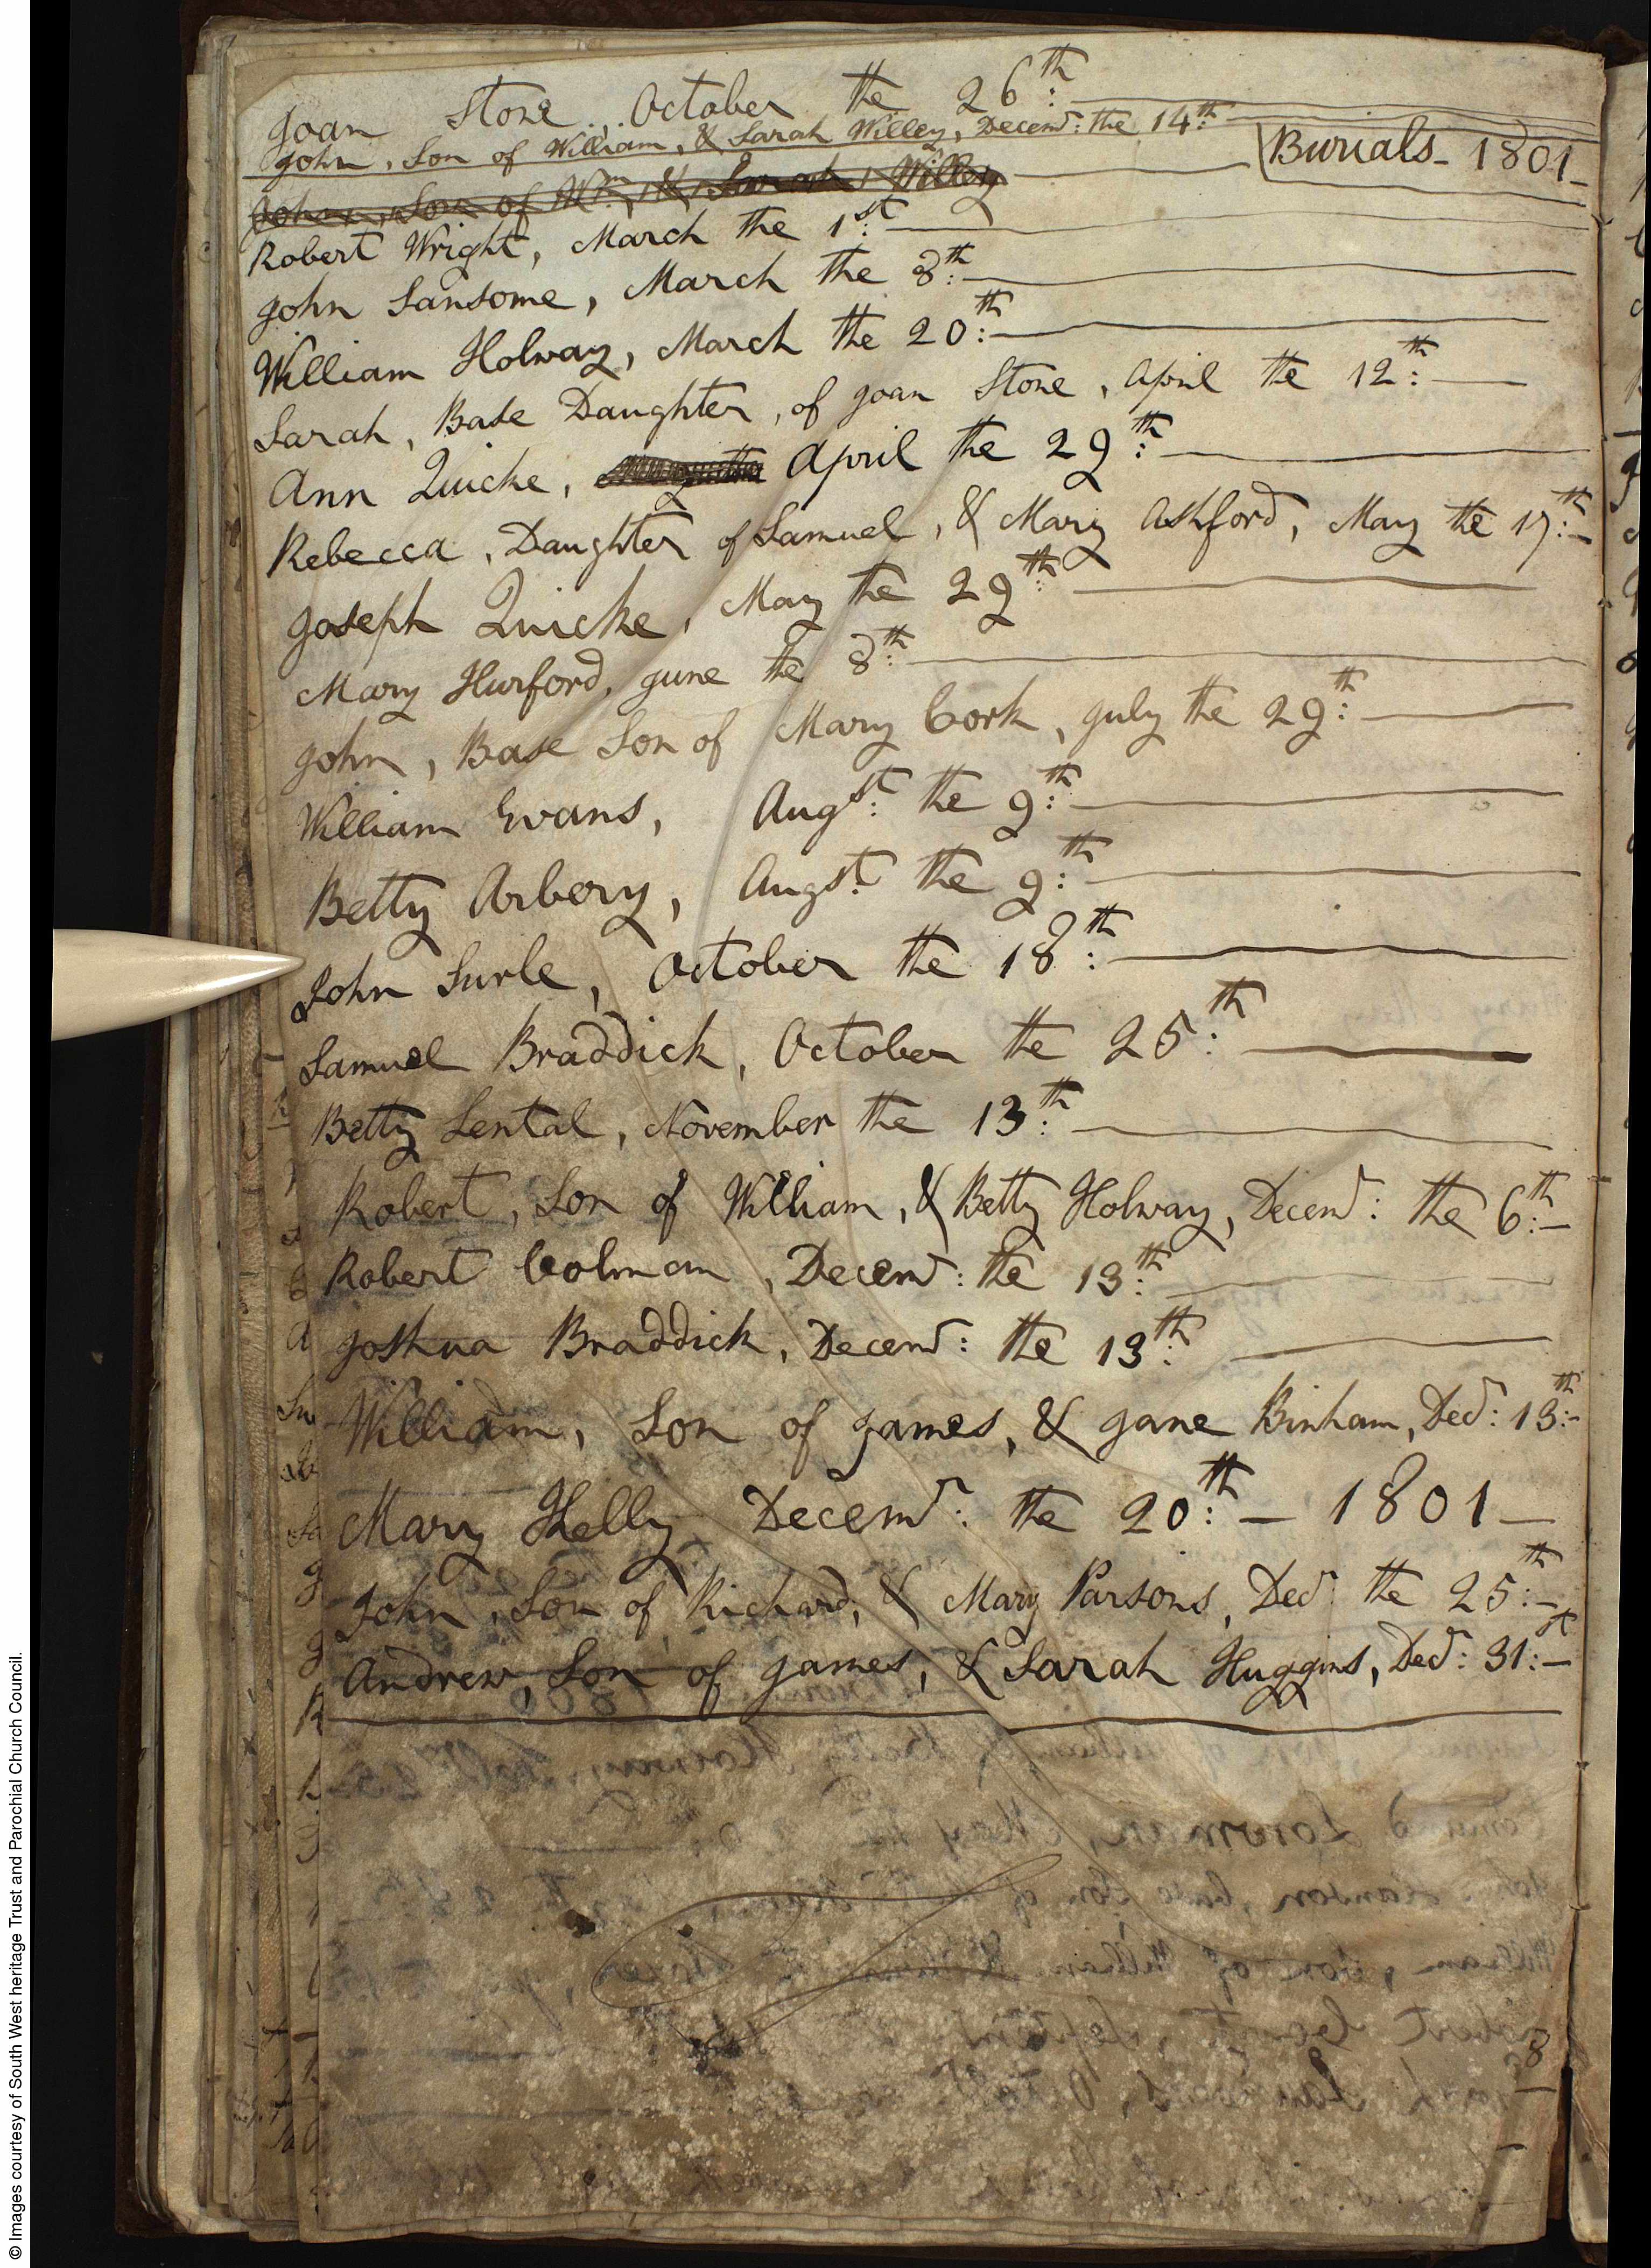 Joan Stone October the 26th:
John, Son of William, & Sarah Willey, Decemr: the 14th:
Burials - 1801
John, Son of Wm, & Sarah Willey
Robert Wright, March the 1st:
John Sansome, March the 8th:
William Holway, March the 20th:
Sarah, Base Daughter, of Joan Stone, April the 12th:
Ann Quicke, April the 29th:
Rebecca, Daughter of Samuel, & Mary Ashford, May the 17th:
Joseph Quicke, May the 29th:
Mary Hurford, June the 8th:
John, Base Son of Mary Cork, July the 29th:
William Evans, Augst: the 9th:
Betty Arbery, Augst: the 9th:
John Surle, October the 18th:
Samuel Braddick, October the 25th:
Betty Lental, November the 13th:
Robert, Son of William, & Betty Holway, Decemr: the 6th:
Robert Colman, Decemr: the 13th:
Joshua Braddick, Decemr: the 13th:
William, Son of James, & Jane Binham, Decr: 13th:
Mary Kelly Decemr: the 20th: - 1801
John, Son of Richard, & Mary Parsons, Decr the 25th:
Andrew, Son of James, & Sarah Huggins, Decr: 31st:
© Images courtesy of South West heritage Trust and Parochial Church Council.